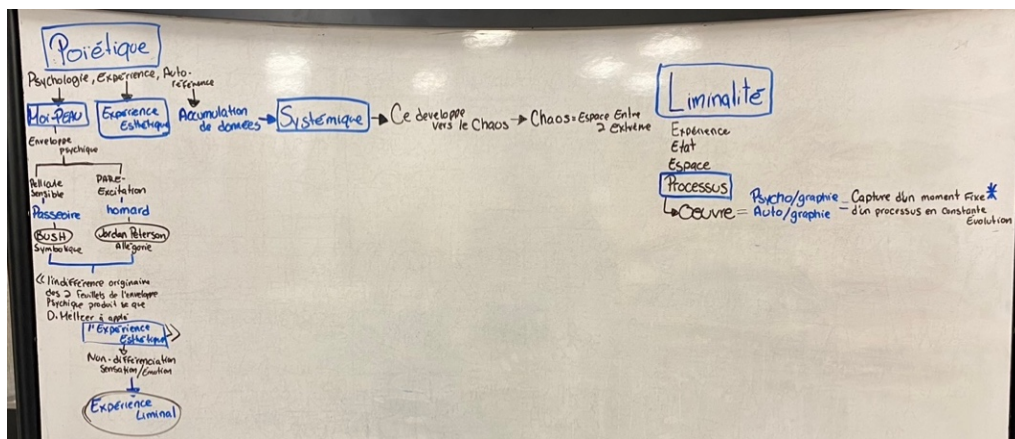 Poïétique
Psychologie, Expérience, Auto-
référence
Moi-PEAU
Expérience
Esthétique
Accumulation
de données
Systémique
Ce developpe
vers le Chaos
Chaos = Espace Entre
2 extrême
Enveloppe
psychique
Pellicule
Sensible
Passeoire
BUSH
Symbolique
PARE-
Excitation
homard
Jordan Peterson
Allégorie
« l'indifférence originaire
des 2 Feuillets de l'enveloppe
Psychique produit ce que
D. Meltzer à applé
l'Expérience
Esthétique »
Non-différenciation
Sensation/Émotion
Expérience
Liminal
Liminalité
Expérience
État
Espace
Processus
Oeuvre = Psycho/graphie
Auto/graphie
Capture d'un moment Fixe *
d'un processus en constante
Évolution